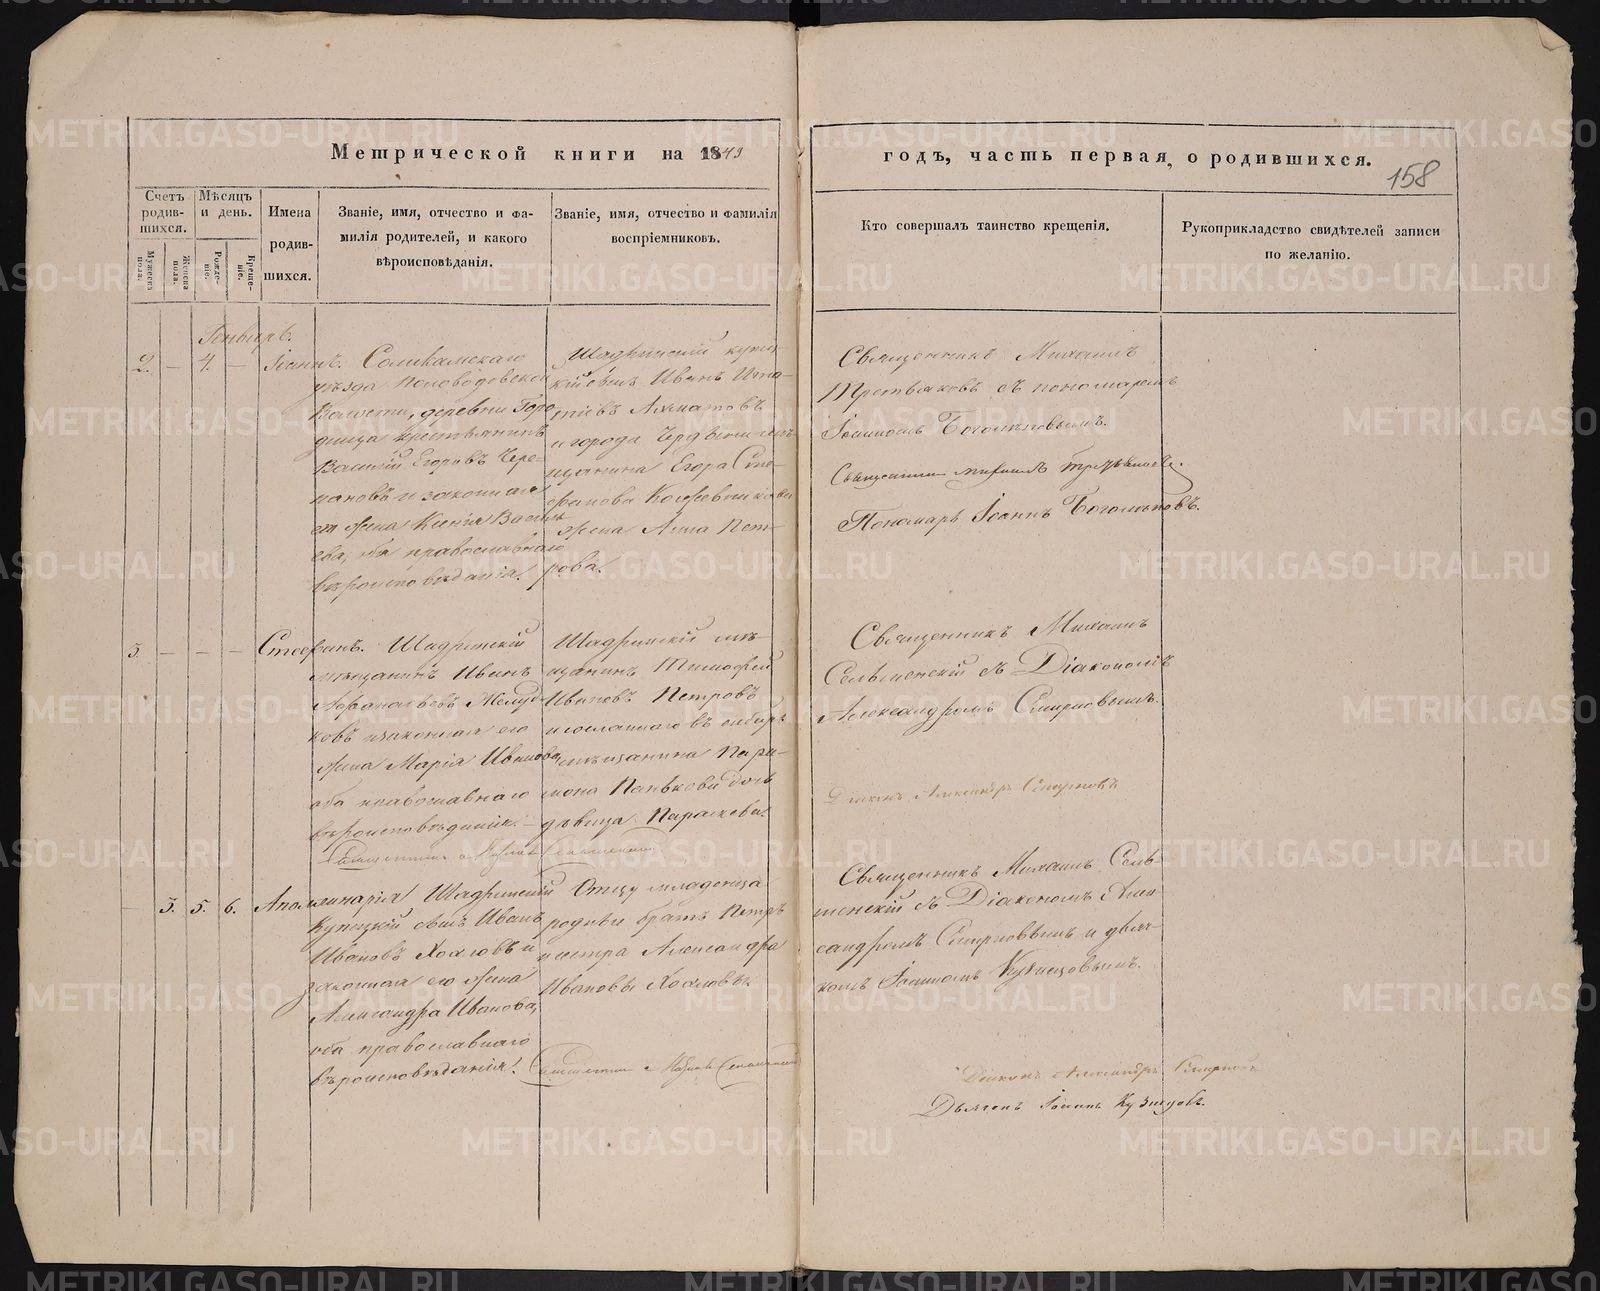 Метрической книги на 1843
годъ, часть первая, о родившихся.
158
Счетъ родив-шихся.
Мѣсяцъ и день.
Имена родив-шихся.
Званіе, имя, отчество и фа-
милія родителей, и какого
вѣроисповѣданія.
Званіе, имя, отчество и фамилія
воспріемниковъ.
Кто совершалъ таинство крещенія.
Рукоприкладство свидѣтелей записи
по желанію.
Мужеска пола.
Женска пола.
Рожде-ніе.
Креще-ніе.
Генварь.
2. — 4. — Іоаннъ.
Соликамскаго
уѣзда Половодовской
Волости, деревни Горо-
дища крестьянинъ
Василій Егоровъ Чере-
пановъ и законная
его жена Ксенія Василь-
ева, оба православнаго
вѣроисповѣданія.
Шадринскій купе-
скій сынъ Иванъ
Ахматовъ
и города Чердыни мѣ-
щанина Егора Сте-
фанова Кожевникова
жена Анна Пет-
рова.
Священникъ Михаилъ
Третьяковъ съ пономаремъ
Іоанномъ Боголѣповымъ.
Священникъ Михаилъ Третьяковъ.
Пономарь Іоаннъ Боголѣповъ.
3. — — — Стефанъ.
Шадринскій
мѣщанинъ Иванъ
Афанасьевъ
ковъ и законная его
жена Марія Иванова,
оба православнаго
вѣроисповѣданія.
Шадринскій мѣ-
щанинъ Тимофей
Ивановъ Петровъ
и сосланнаго въ сибирь
мѣщанина Пари-
мона Панькова дочь
дѣвица Параскева.
Священникъ Михаилъ
Сельменскій съ Діакономъ
Александромъ Смирновымъ.
Діаконъ Александръ Смирновъ
— 3. 5. 6. Аполлинарія,
Шадринскій
Купецкій сынъ Иванъ
Ивановъ Хохловъ и
законная его жена
Александра Иванова,
оба православнаго
вѣроисповѣданія.
Отцу младенца
родные братъ Петръ
и сестра Александра
Ивановы Хохловы.
Священникъ Михаилъ Сель-
менскій съ Діакономъ Алек-
сандромъ Смирновымъ и дьяч-
комъ Іоанномъ Кузнецовымъ.
Діаконъ Александръ Смирновъ
Дьячекъ Іоаннъ Кузнецовъ.
METRIKI.GASO-URAL.RU